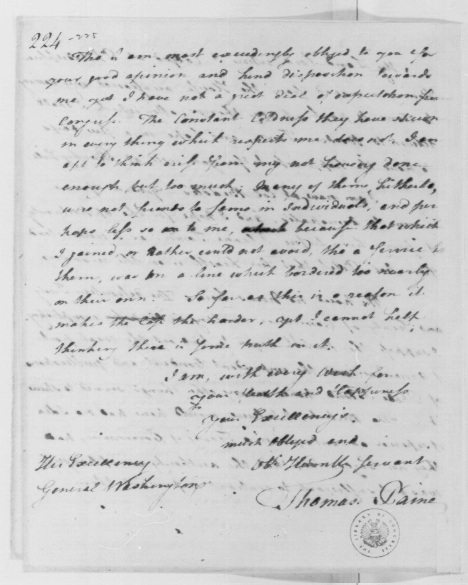 224
Tho' I am most exceedingly obliged to you for
your good opinion and kind disposition towards
me yet I have not a great deal of expectation from
Congress. The Constant Coldness they have shewn
in every thing which respects me does not. I am
apt to think arise from my not having done
enough but too much. Many of them, hitherto,
were not friends to fame in Individuals, and per
haps less so in to me, because that which
I gained, or Rather could not avoid, tho' a Service to
them, was on a line which bordered too nearly
on their own. So far as this is a reason it
makes the Case the harder, yet I cannot help
thinking there is some truth in it.
I am, with every wish for
your Health and Happiness
Your Excellency's
much obliged and
Humble Servant
His Excellency
General Washington
Thomas Paine